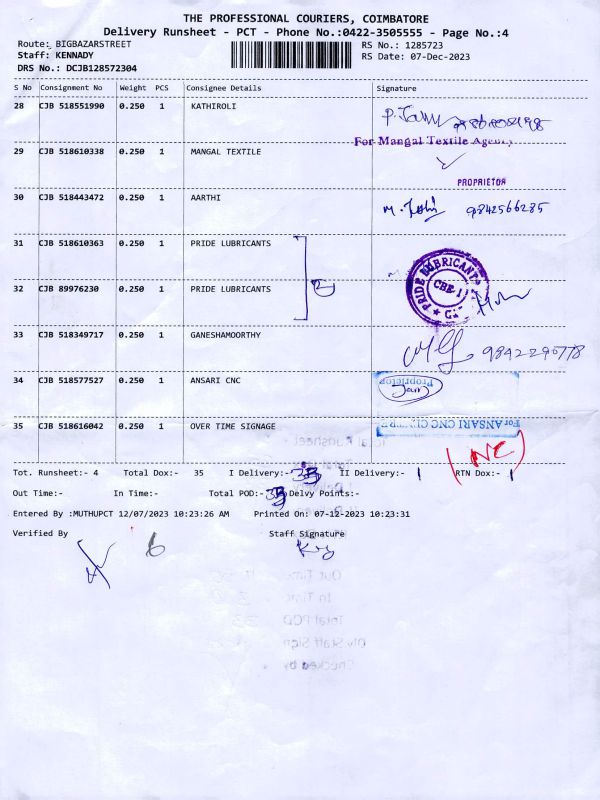 THE PROFESSIONAL COURIERS, COIMBATORE
Delivery Runsheet - PCT - Phone No.:0422-3505555 - Page No.:4
Route: BIGBAZARSTREET RS No.: 1285723
Staff: KENNADY RS Date: 07-Dec-2023
DRS No.: DCJB128572304
S No Consignment No Weight PCS Consignee Details Signature
28 CJB 518551990 0.250 1 KATHIROLI
For Mangal Textile Agency
29 CJB 518610338 0.250 1 MANGAL TEXTILE
PROPRIETOR
30 CJB 518443472 0.250 1 AARTHI 9842566285
31 CJB 518610363 0.250 1 PRIDE LUBRICANTS
32 CJB 89976230 0.250 1 PRIDE LUBRICANTS
2
PRIDE LUBRICANTS
CBE-1
33 CJB 518349717 0.250 1 GANESHAMOORTHY
9842290778
34 CJB 518577527 0.250 1 ANSARI CNC
Proprietor
35 CJB 518616042 0.250 1 OVER TIME SIGNAGE
For ANSARI CNC
(NC)
Tot. Runsheet:- 4 Total Dox:- 35 I Delivery:- 33 II Delivery:- 1 RTN Dox:- 1
Out Time:- In Time:- Total POD:- 33 Delvy Points:-
Entered By :MUTHUPCT 12/07/2023 10:23:26 AM Printed On: 07-12-2023 10:23:31
Verified By Staff Signature
6
Out Time
In Time
Total POD
Dlv Staff Sign
Checked by